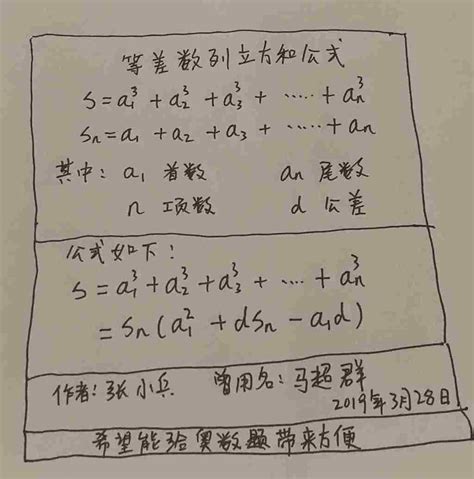 等差数列立方和公式
S=a₁³+a₂³+a₃³+……+aₙ³
Sn=a₁+a₂+a₃+……+an
其中: a₁ 首数 an 尾数
n 项数 d 公差
公式如下:
S=a₁³+a₂³+a₃³+……+aₙ³
=Sn(a₁²+dSn-a₁d)
作者:张小兵 曾用名:马超群
2019年3月28日
希望能给奥数题带来方便